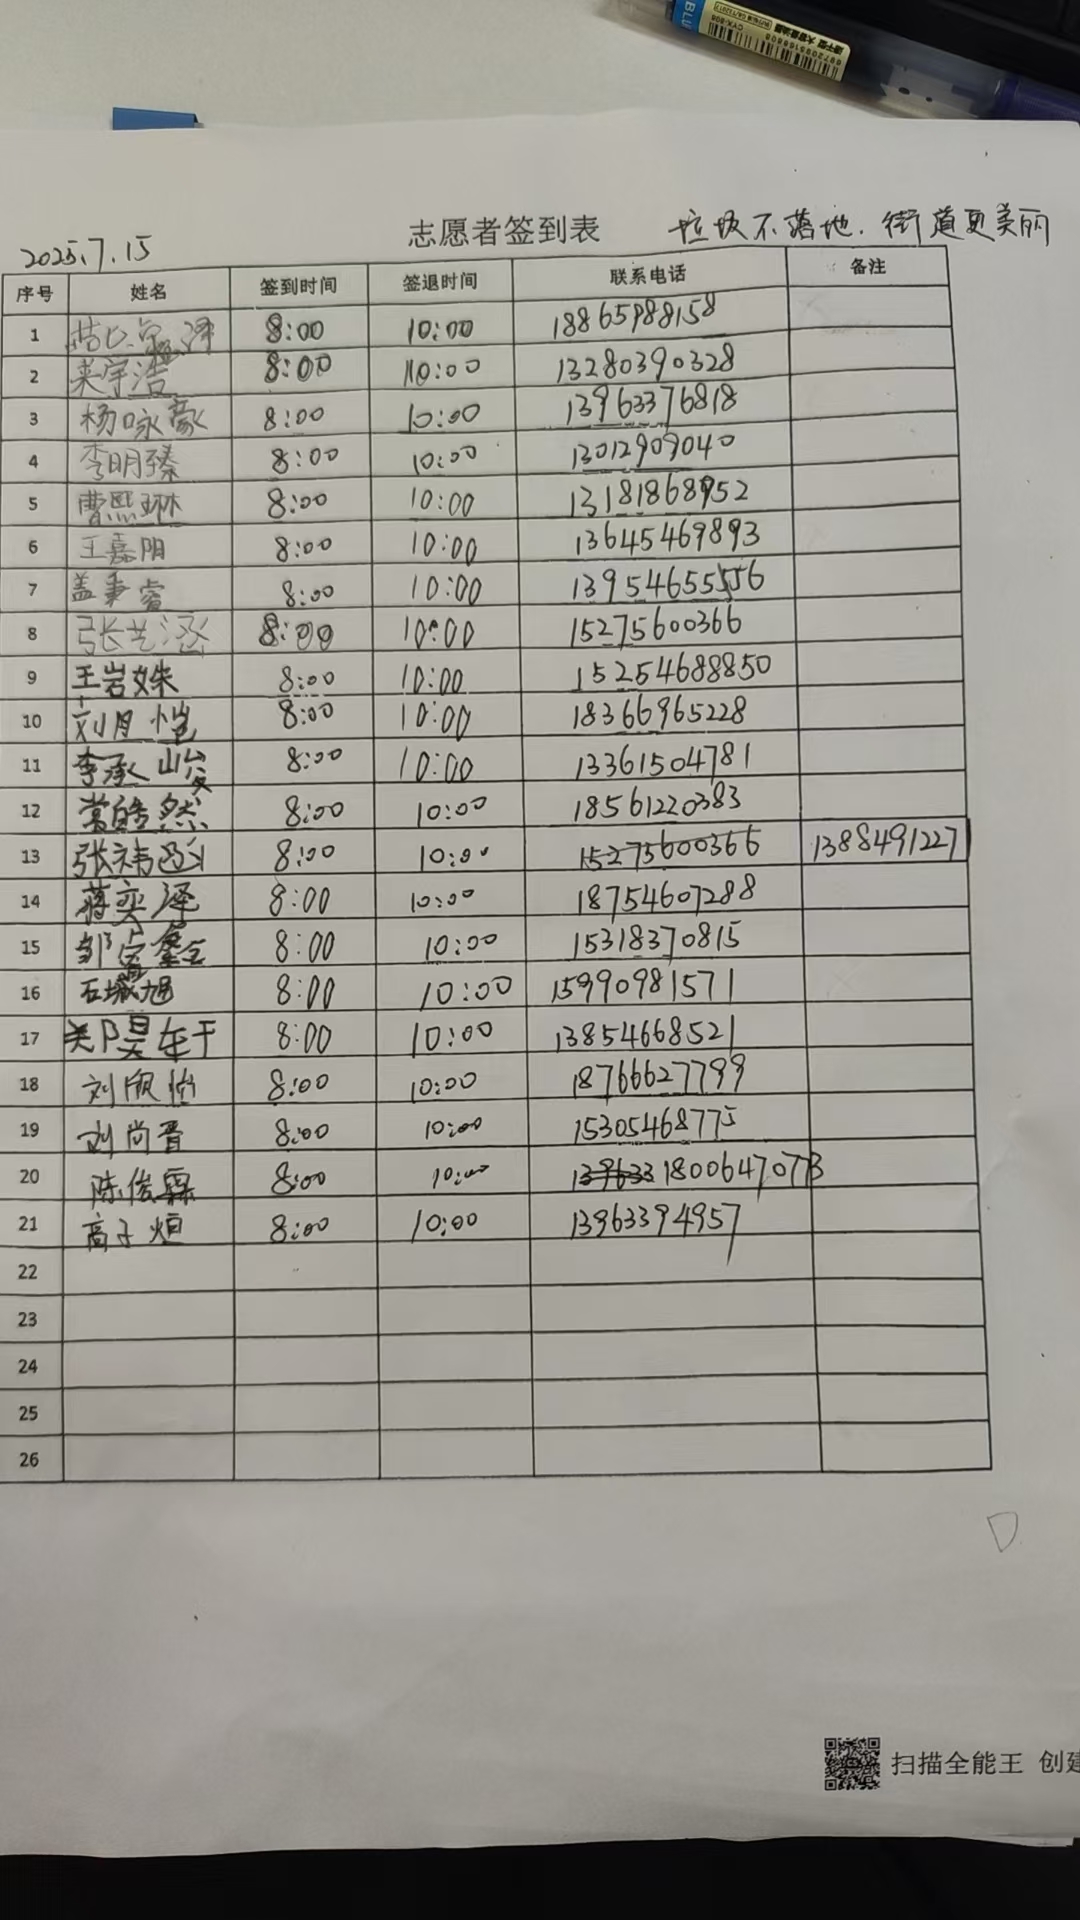 BLUE
CYX-808
6972085168808
志愿者签到表 垃圾不落地.街道更美丽
2025.7.15
序号 姓名 签到时间 签退时间 联系电话 备注
1 泽 8:00 10:00 18865988158
2 宇浩 8:00 10:00 13280390328
3 杨咏豪 8:00 10:00 13963376818
4 李明臻 8:00 10:00 13012909040
5 曹熙琳 8:00 10:00 13181868952
6 王嘉阳 8:00 10:00 13645469893
7 盖秉睿 8:00 10:00 13954655556
8 张艺涵 8:00 10:00 15275600366
9 王岩姝 8:00 10:00 15254688850
10 刘月恺 8:00 10:00 18366965228
11 李承峻 8:00 10:00 13361504781
12 常皓然 8:00 10:00 18561220383
13 张祎 8:00 10:00 15275600366 13884912271
14 蒋奕泽 8:00 10:00 18754607288
15 邹 鑫 8:00 10:00 15318370815
16 石城旭 8:00 10:00 15990981571
17 关 昊 8:00 10:00 13854668521
18 刘欣怡 8:00 10:00 18766627799
19 刘尚晋 8:00 10:00 15305468775
20 陈俊霖 8:00 10:00 139633 18006470773
21 高子烜 8:00 10:00 13963394957
22
23
24
25
26
扫描全能王 创建